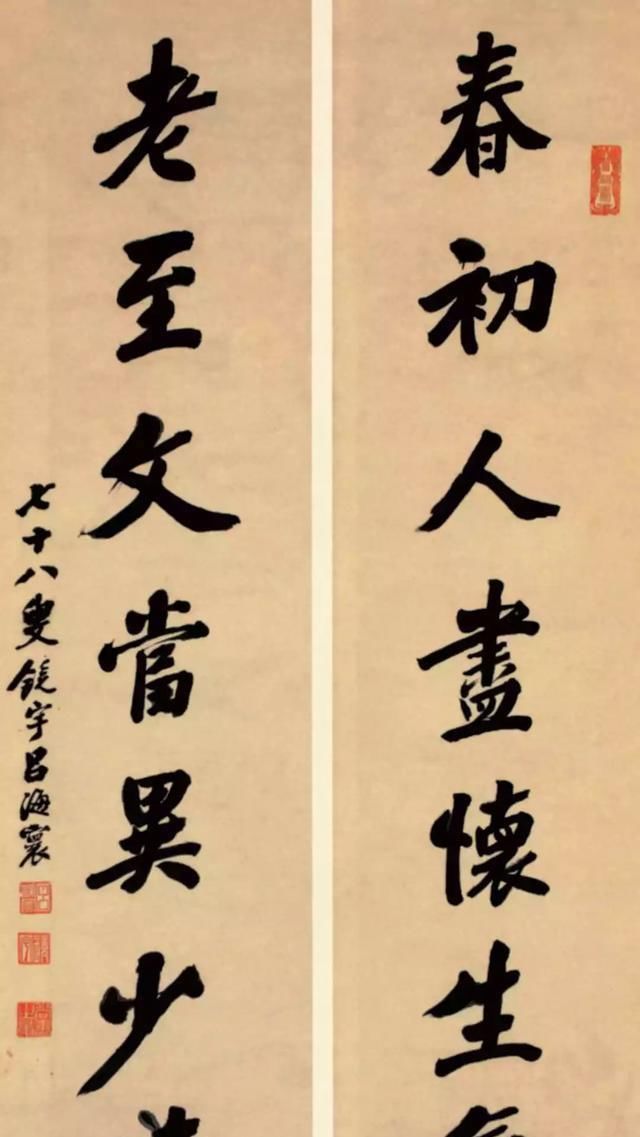 春初人盡懷生
老至文當異少
七十八叟鏡宇呂海寰